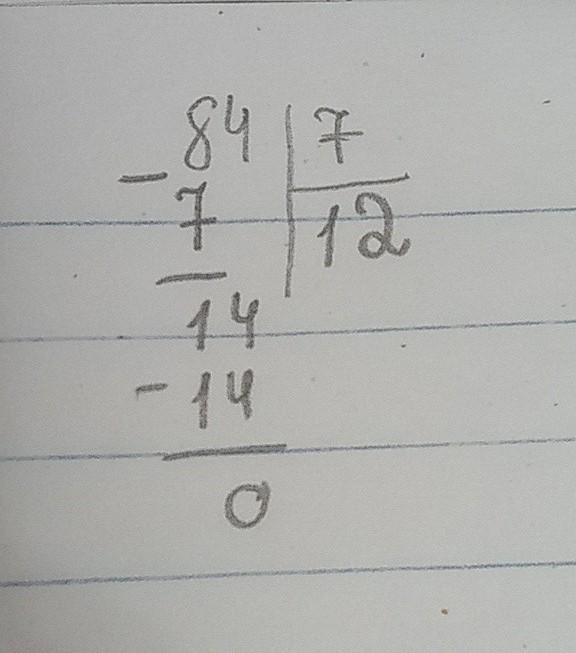 84 | 7
- 7 | 12
14
- 14
0